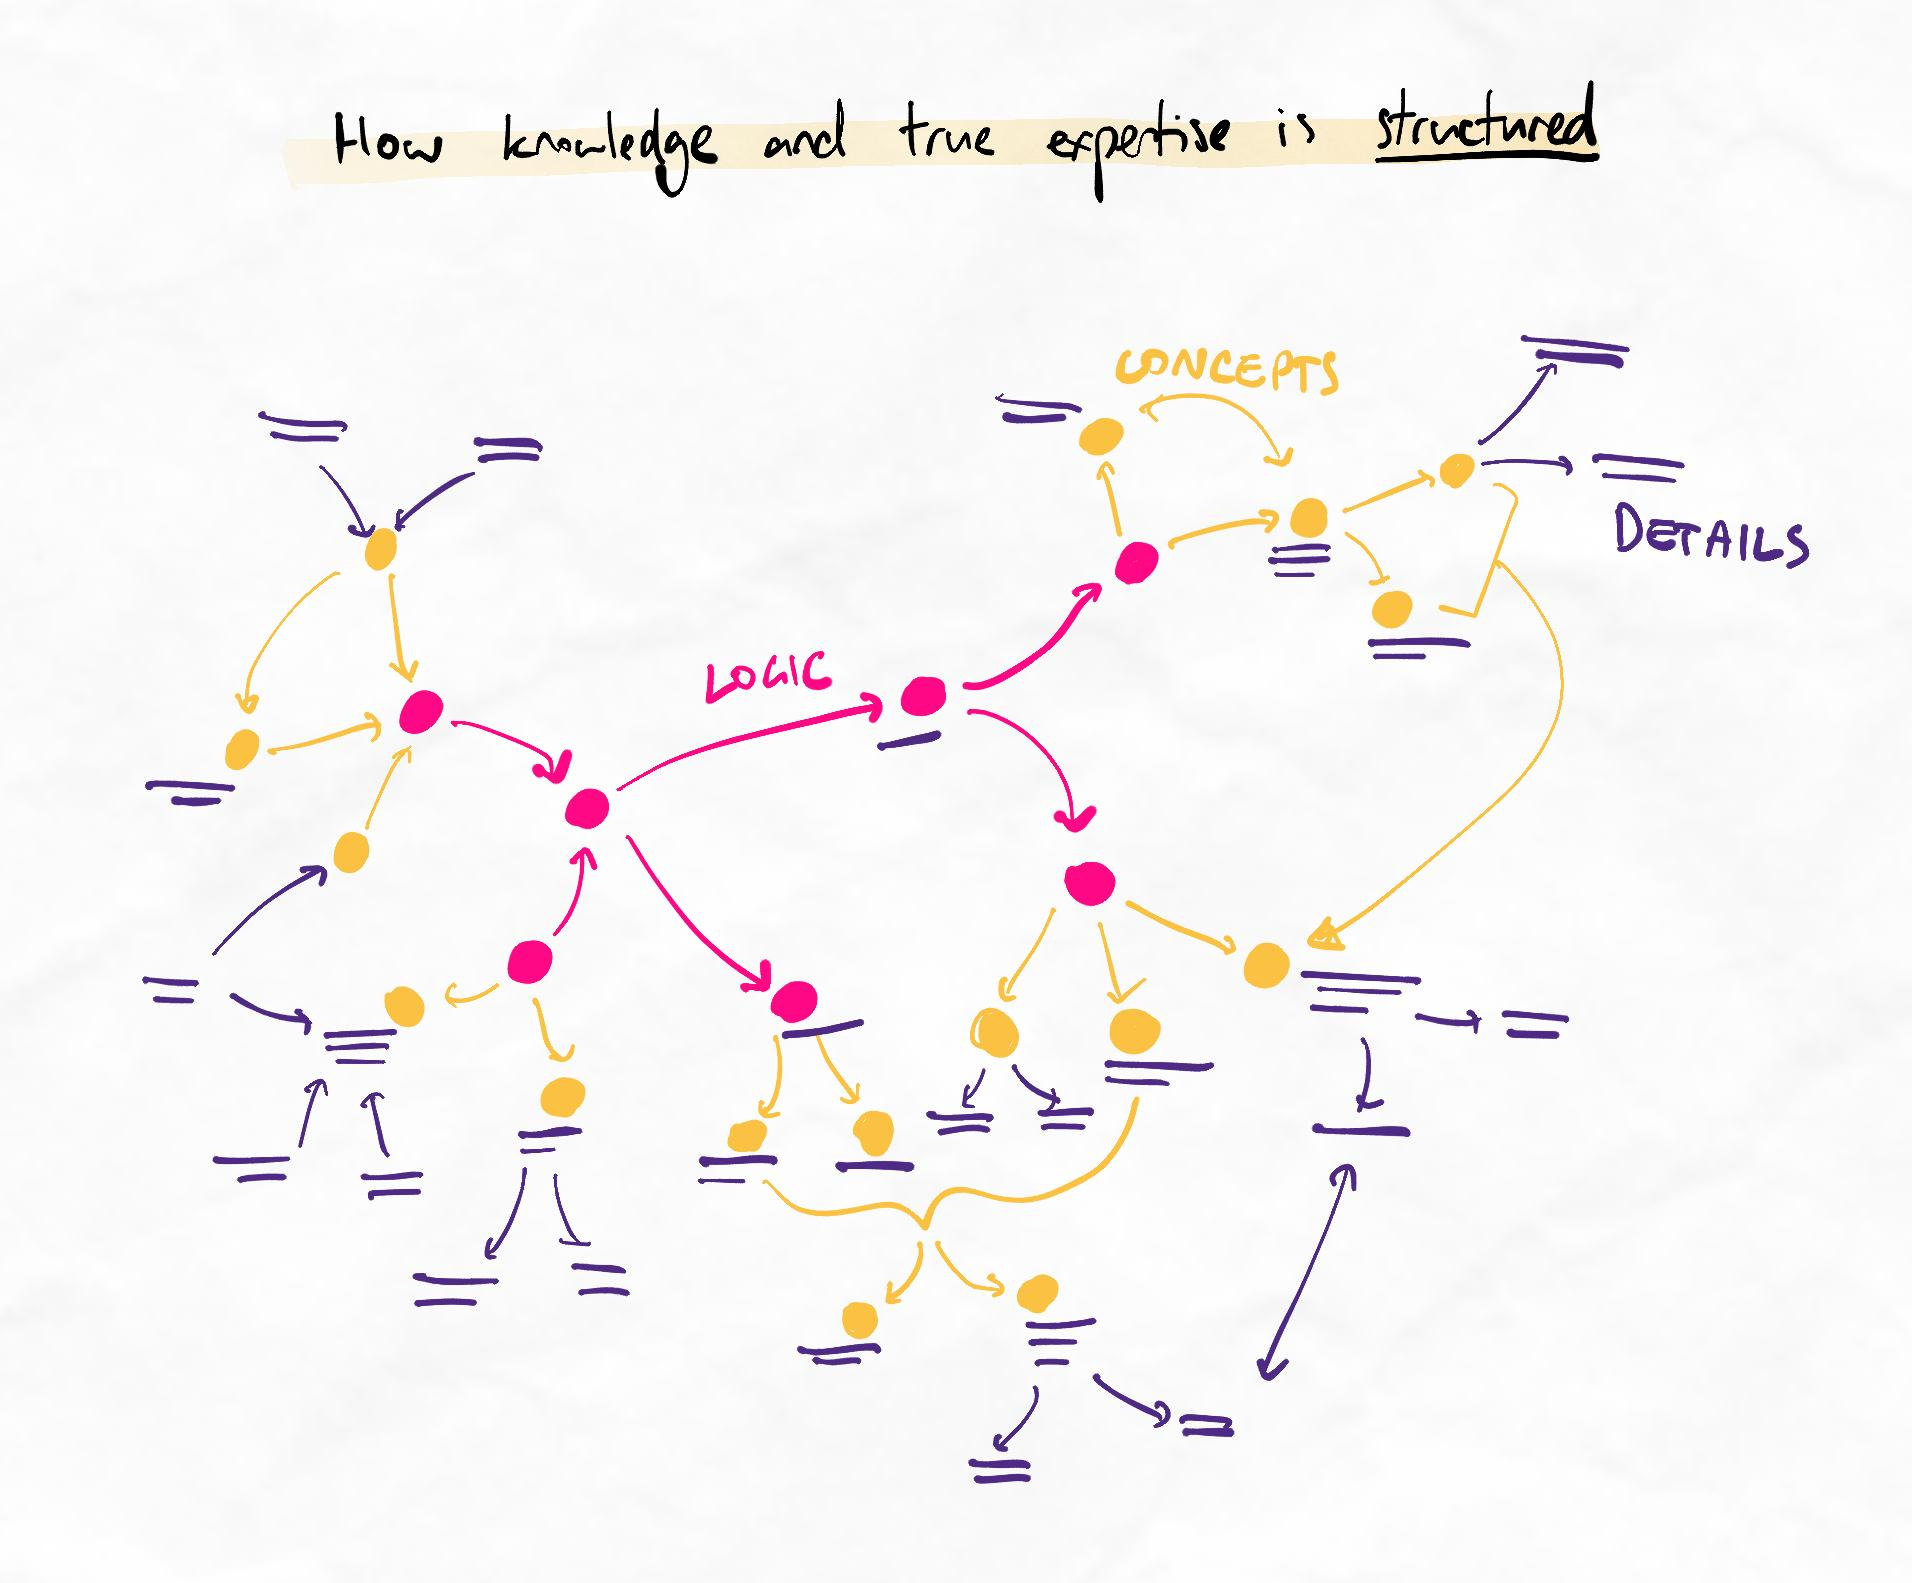 How knowledge and true expertise is structured
CONCEPTS
DETAILS
LOGIC